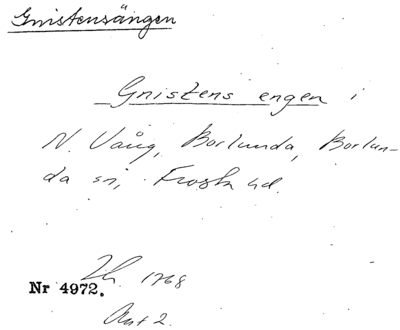 Gnistensängen
Gnistens engen i
N. Vång, Borlunda, Borlun-
da sn, Frosta hd.
Lh. 1768
Nr 4972.
Akt 2.